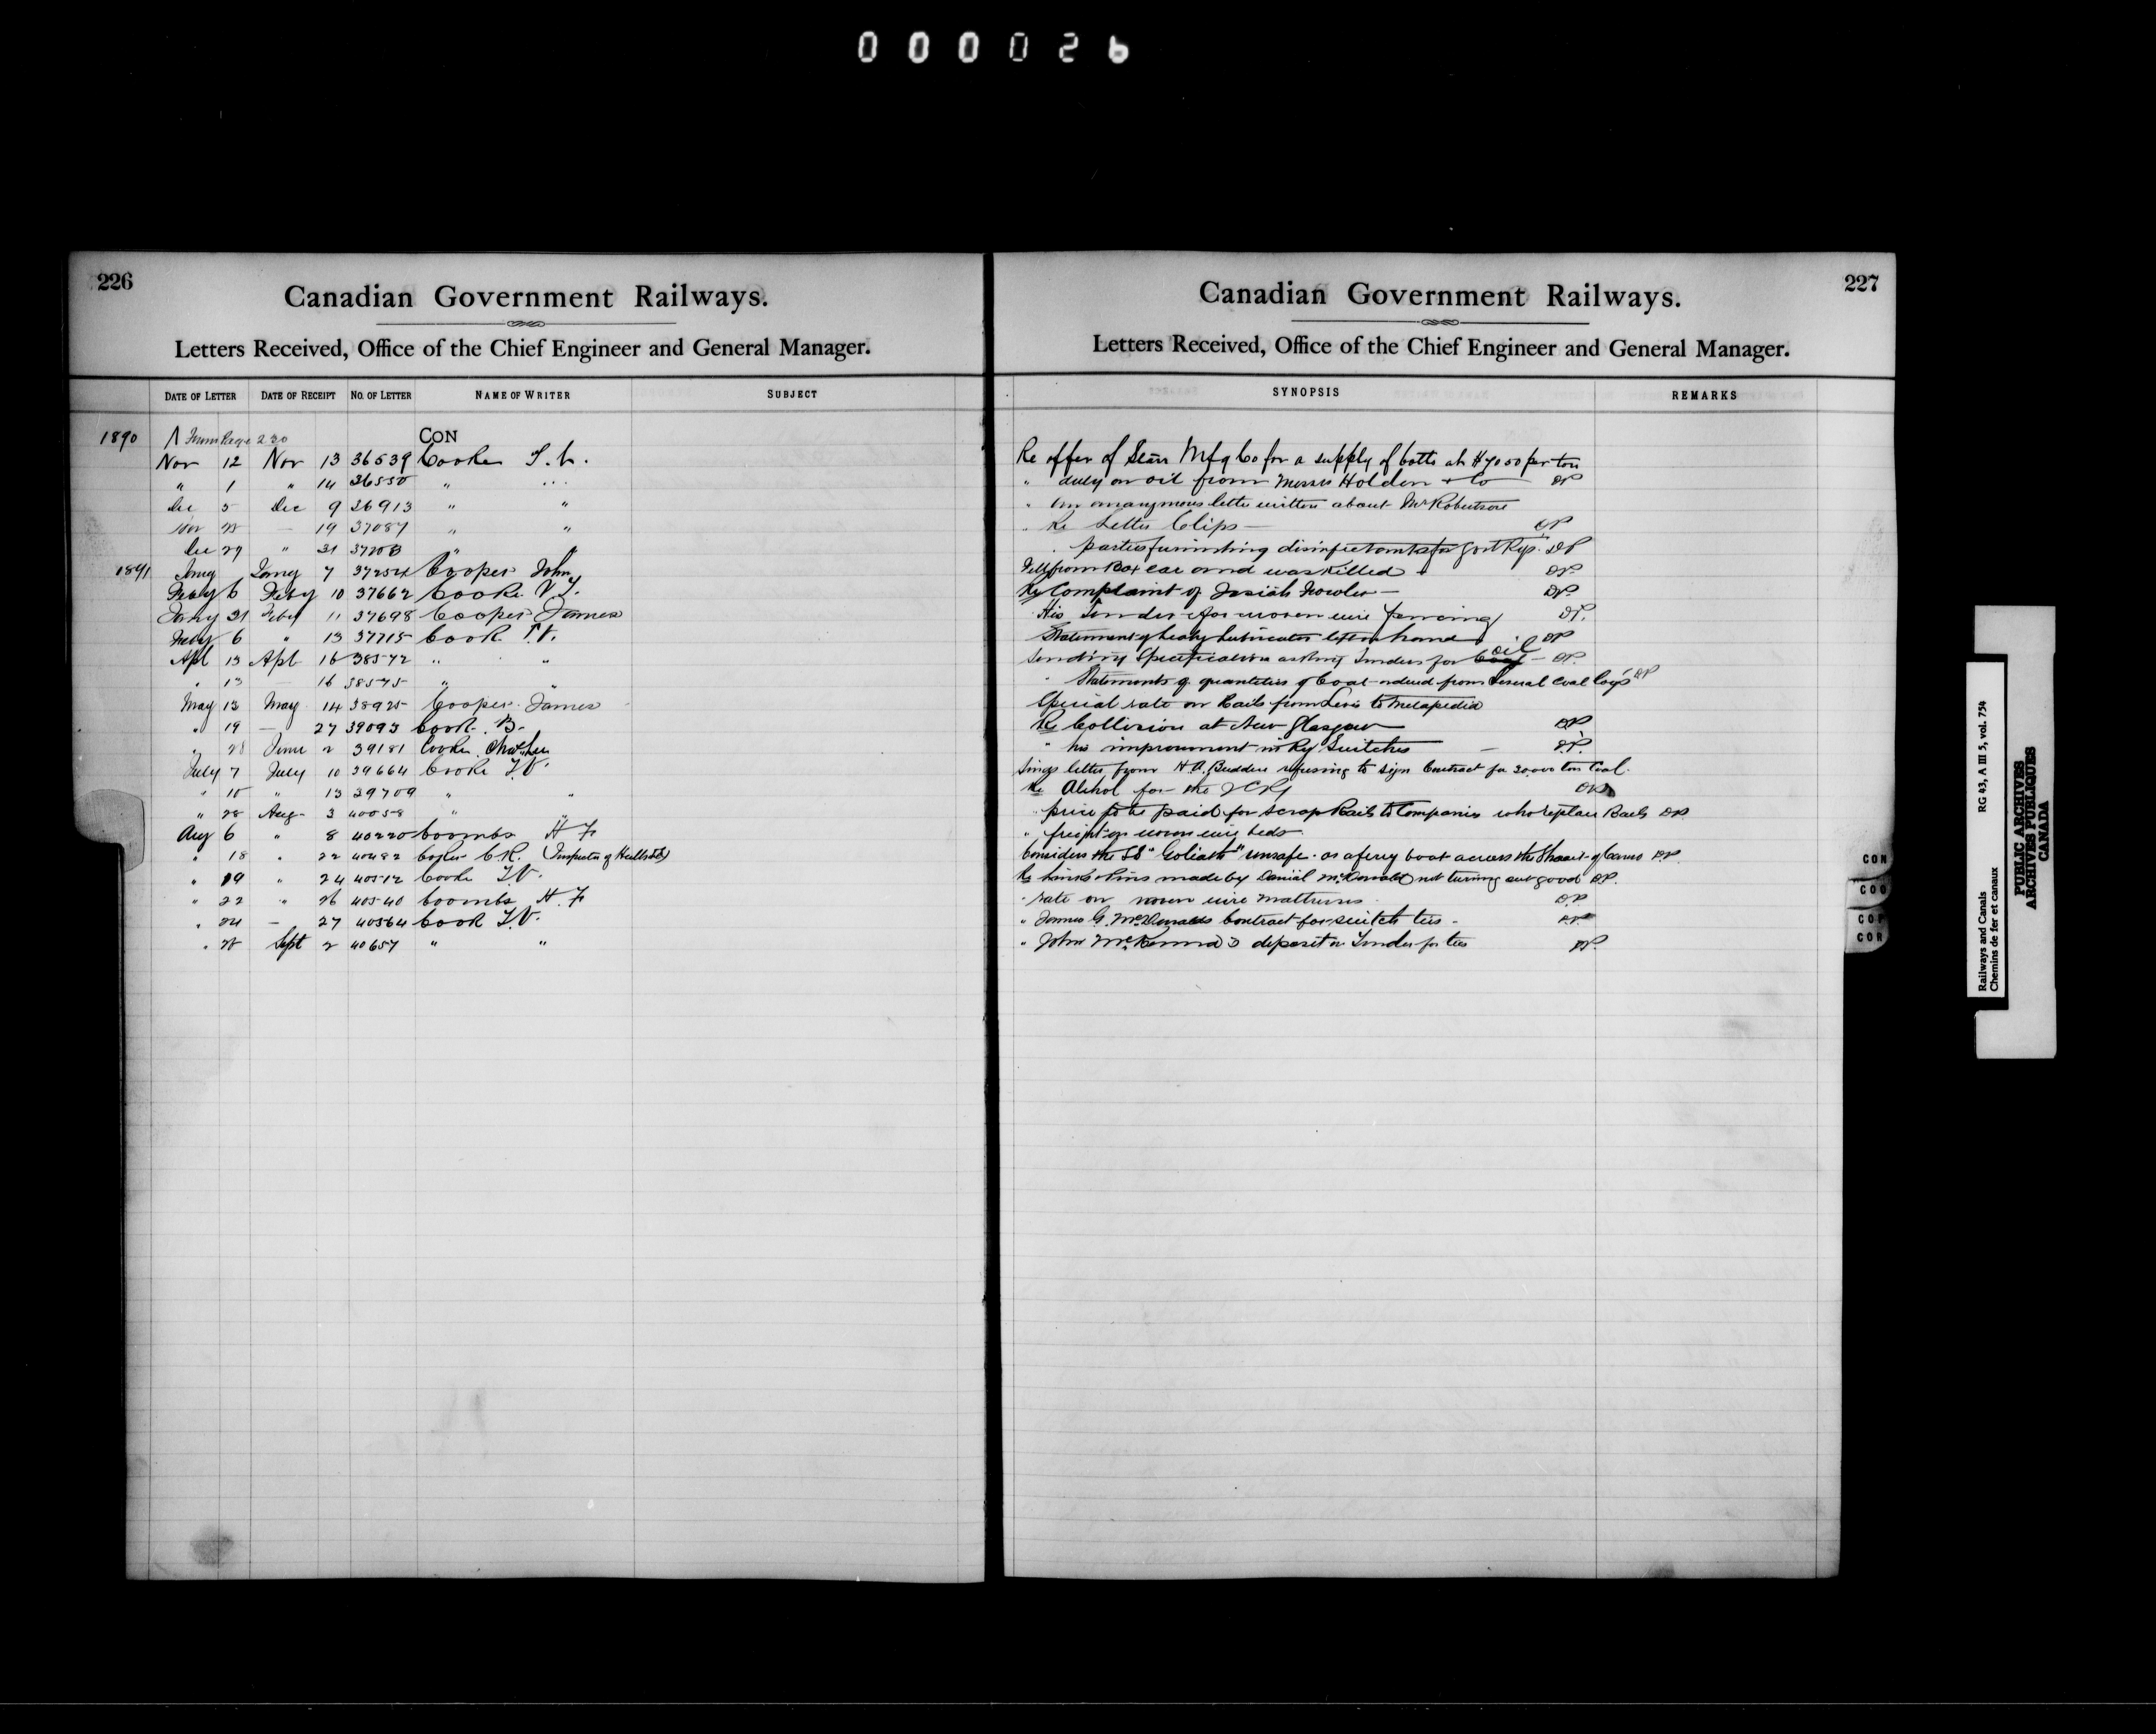 000026
226
Canadian Government Railways.
Letters Received, Office of the Chief Engineer and General Manager.
DATE OF LETTER DATE OF RECEIPT NO. OF LETTER NAME OF WRITER SUBJECT
1890 From Page 230 CON
Nov 12 Nov 13 36539 Cooke
" 1 " 14 36550 "
Dec 5 Dec 9 36913 " "
Nov 19 37087 " "
Dec 29 " 31 "
1891 Jany Jany 7 37254 Cooper John
Feby 6 Feby 10 37662 Cooke
Jany 31 Feby 11 37698 Cooper James
Feby 6 " 13 37715 Cook T.V.
Apl 13 Apl 16 38572 " "
" 13 16 38575 " "
May 13 May 14 38925 Cooper James
" 19 — 27 39093 Cook B.
" 28 June 2 39181 Cooke
July 7 July 10 39664 Cooke T.V.
" 10 " 13 39709 " "
" 28 Aug 3 40058 " "
Aug 6 " 8 40220 Coombs H F
" 18 " 22 40482 C.R. (Inspector of Hulls &c)
" 19 " 24 40512 Cooke T.V.
" 22 " 26 40540 Coombs H. F
" 24 — 27 40564 Cook T.V.
" 28 Sept 2 40657 " "
227
Canadian Government Railways.
Letters Received, Office of the Chief Engineer and General Manager.
SYNOPSIS REMARKS
Re offer of Starr Mfg Co for a supply of bolts at $70.00 per ton
" duty on oil from Messrs Holden & Co DP
" An anonymous letter written about Mr Robertson
" Re Letter Clips — DP
" parties furnishing disinfectants for Govt Rys. DP
Fell from Box car and was killed DP
Re Complaint of Josiah Fowler — DP
His Tender for woven wire fencing DP.
Statement of heavy Lubricator left on hand DP
Sending Specification asking Tenders for Coal oil — DP.
" Statements of quantities of Coal ordered from Several Coal Coys DP
Special rate on Rails from Levis to Metapedia
Re Collision at New Glasgow DP
" his improvement in Ry Switches — DP.
letter from H.A. Budden refusing to sign Contract for 20,000 tons Coal.
Re Alcohol for the ICRy DP
" price to be paid for scrap Rails to Companies who replace Rails DP
" freight on woven wire beds
Considers the SS "Goliath" unsafe as a ferry boat across the Strait of Canso DP.
Re made by Daniel McDonald not turning out good DP.
" rate on woven wire mattresses DP
" James G. McDonalds Contract for switch ties - DP
" John McKenna's deposit on Tender for ties DP.
CON
COO
COP
COR
Railways and Canals RG 43, A III 5, vol. 754
Chemins de fer et canaux
PUBLIC ARCHIVES
ARCHIVES PUBLIQUES
CANADA